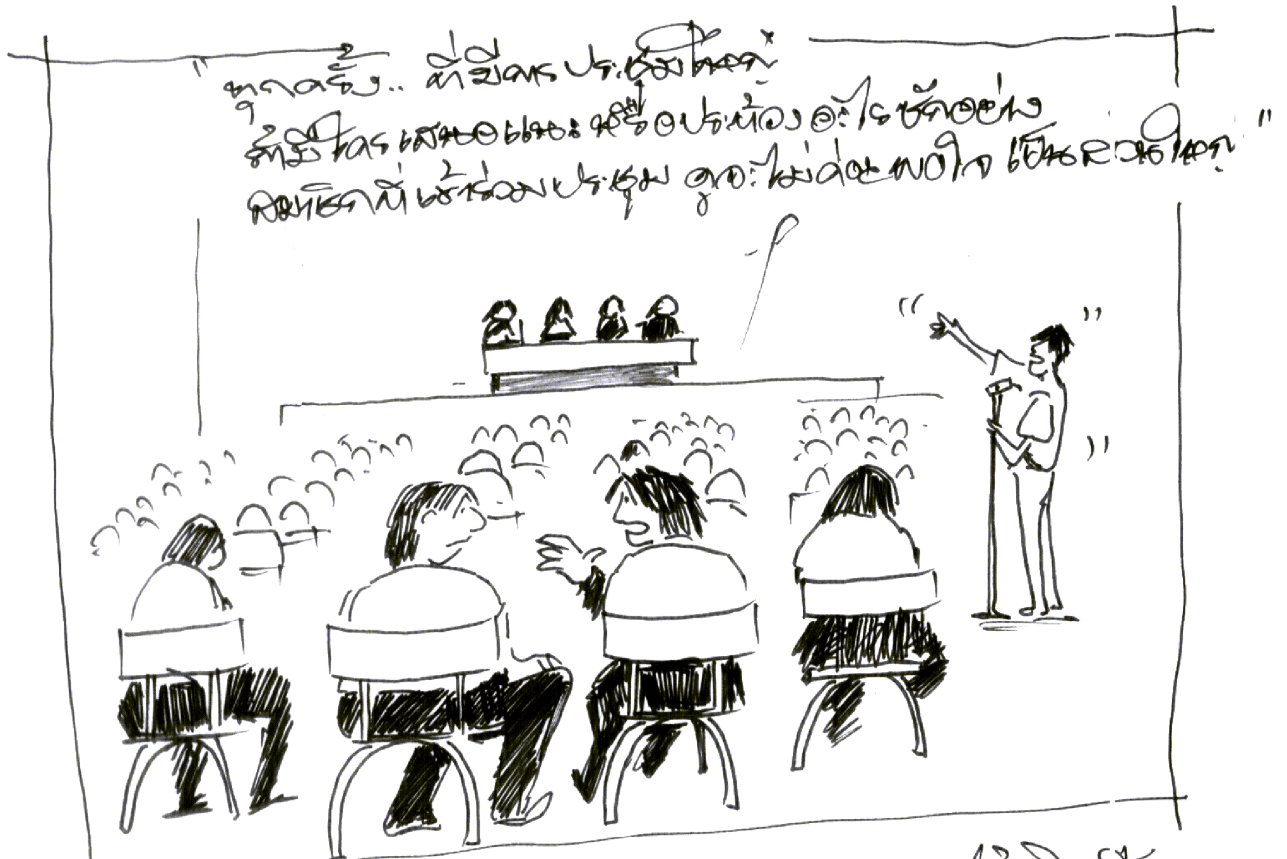 "ทุกครั้ง.. ที่มีการประชุมใหญ่
ถ้ามีใครเสนอแนะหรือประท้วงอะไรซักอย่าง
สมาชิกที่เข้าร่วมประชุม ดูจะไม่ค่อยพอใจ เป็นส่วนใหญ่"